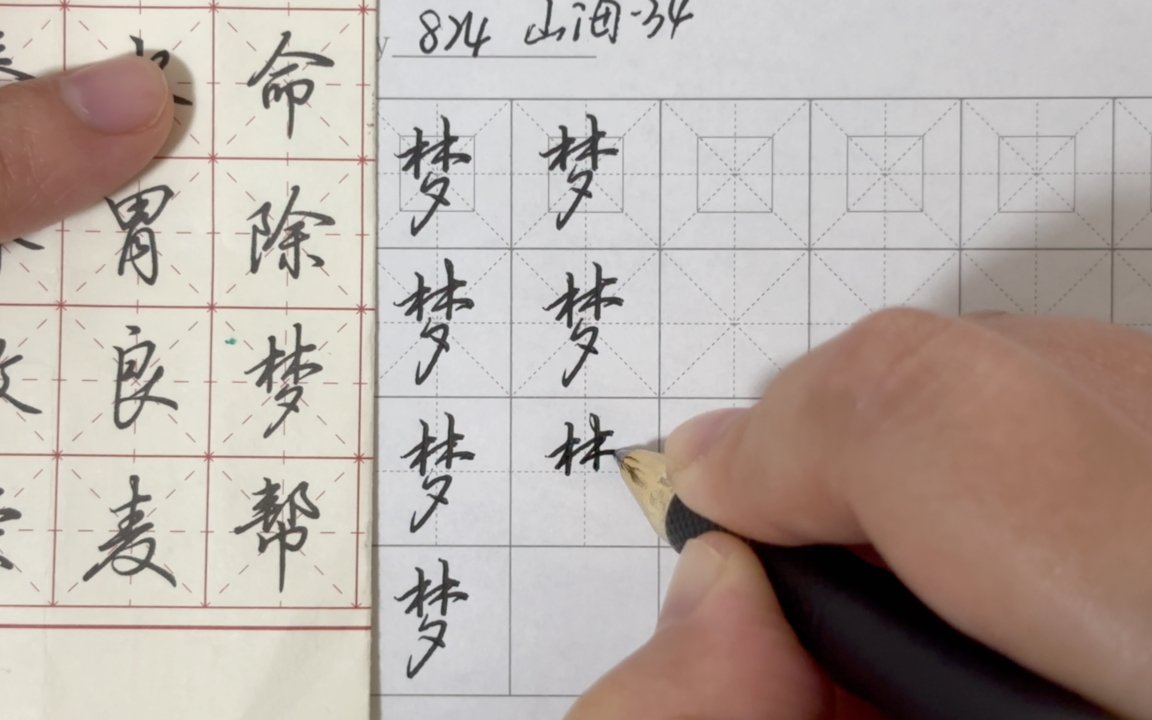 824 山海-34
命
除
梦
帮
胃
良
麦
梦 梦
梦 梦
梦 林
梦